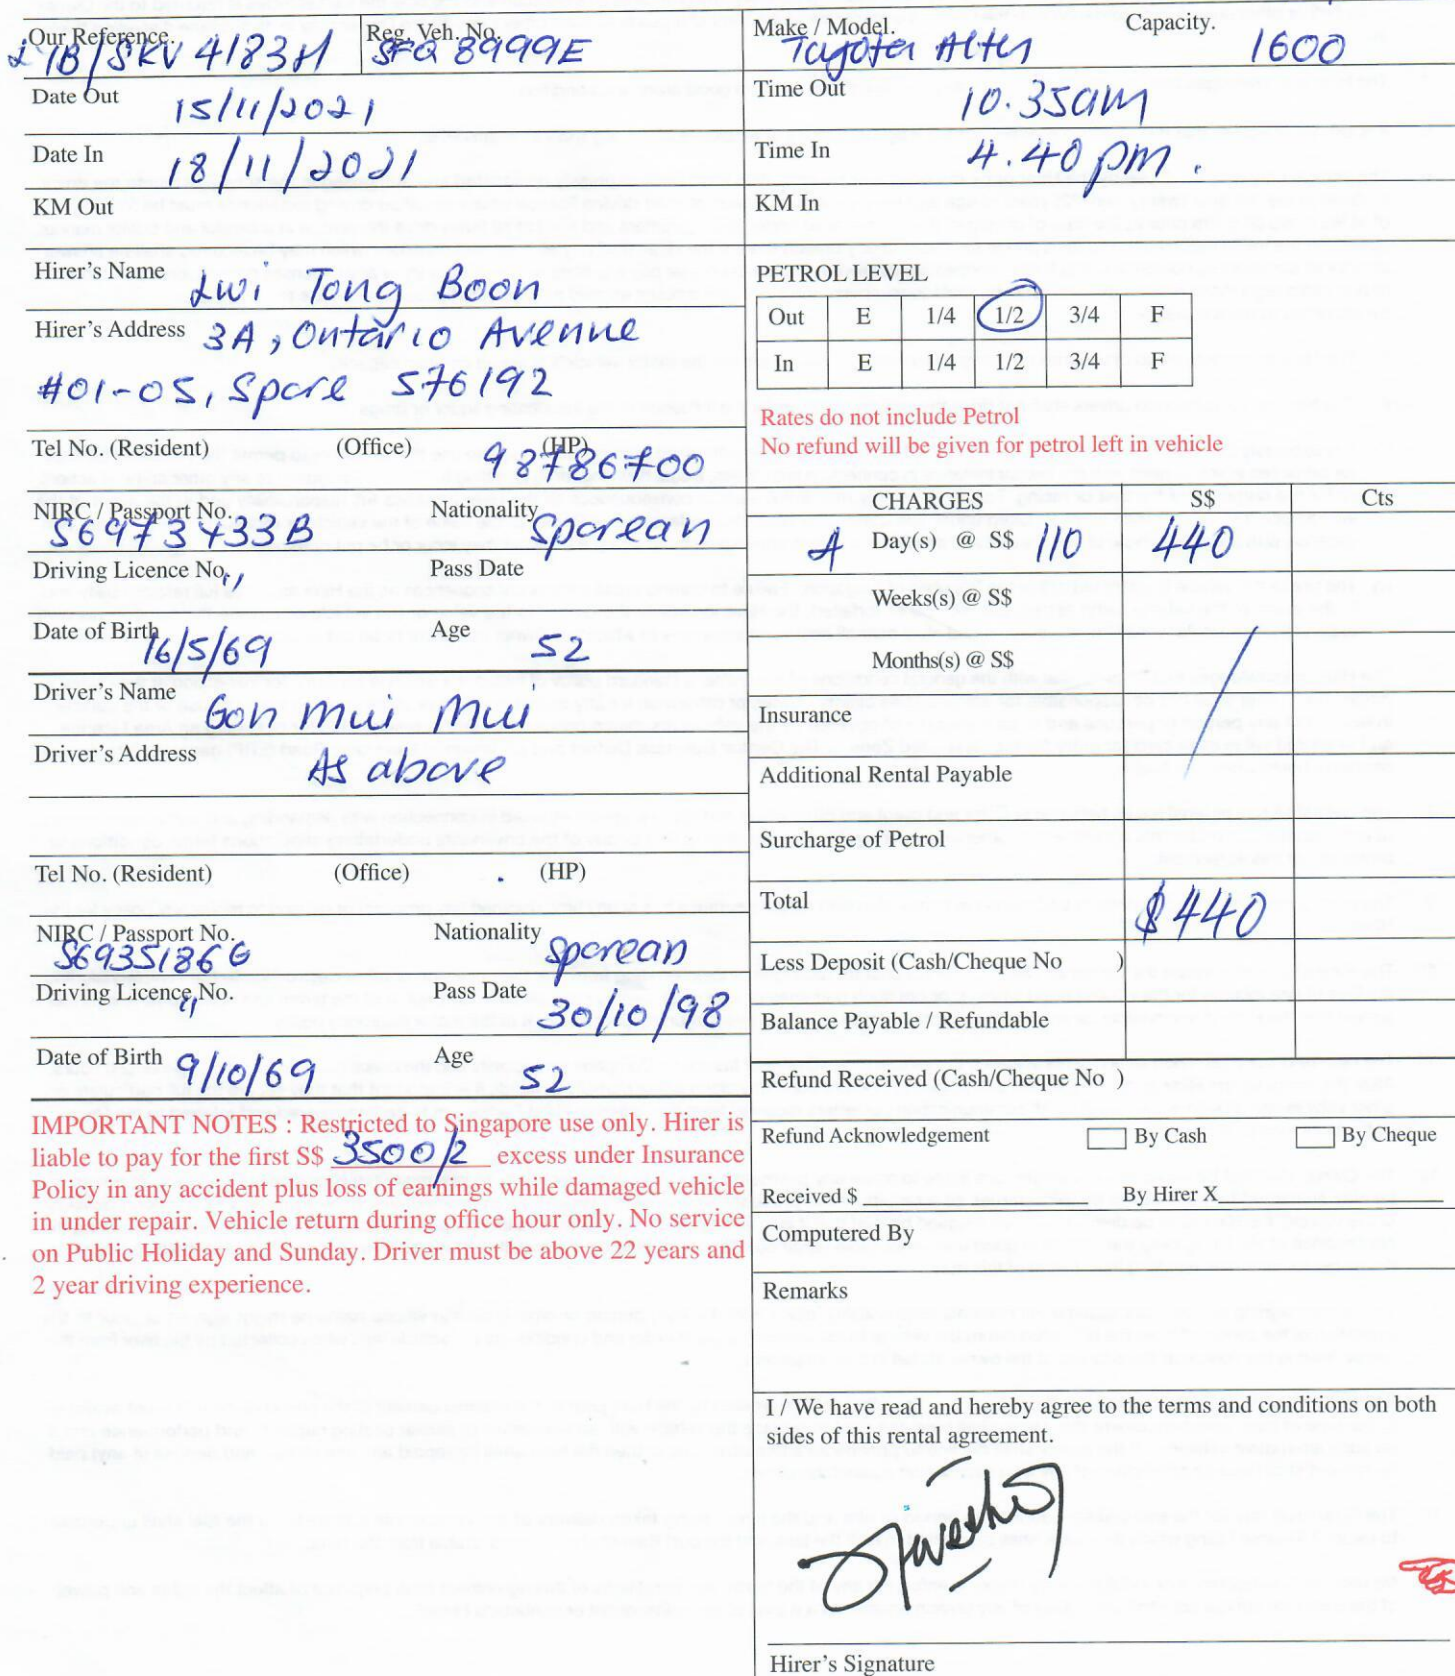 Our Reference. Reg. Veh. No. Make / Model. Capacity.
SKV 4183H SFQ 8999E 1600
Date Out 15/11/2021
Time Out 10.35am
Date In 18/11/2021
Time In 4.40 pm.
KM Out
KM In
Hirer's Name Lwi Tong Boon
Hirer's Address 3A, Ontario Avenue
#01-05, Spore 576192
Tel No. (Resident) (Office) (HP) 98786700
NIRC / Passport No. Nationality Sporean
Driving Licence No. 〃 Pass Date
Date of Birth 16/5/69 Age 52
Driver's Name Goh Mui Mui
Driver's Address As above
Tel No. (Resident) (Office) (HP)
NIRC / Passport No. S6935186G Nationality Sporean
Driving Licence No. 〃 Pass Date 30/10/98
Date of Birth 9/10/69 Age 52
IMPORTANT NOTES : Restricted to Singapore use only. Hirer is
liable to pay for the first S$ 3500/2 excess under Insurance
Policy in any accident plus loss of earnings while damaged vehicle
in under repair. Vehicle return during office hour only. No service
on Public Holiday and Sunday. Driver must be above 22 years and
2 year driving experience.
PETROL LEVEL
Out E 1/4 1/2 3/4 F
In E 1/4 1/2 3/4 F
Rates do not include Petrol
No refund will be given for petrol left in vehicle
CHARGES S$ Cts
4 Day(s) @ S$ 110 440
Weeks(s) @ S$
Months(s) @ S$
Insurance
Additional Rental Payable
Surcharge of Petrol
Total $440
Less Deposit (Cash/Cheque No )
Balance Payable / Refundable
Refund Received (Cash/Cheque No )
Refund Acknowledgement By Cash By Cheque
Received $ By Hirer X
Computered By
Remarks
I / We have read and hereby agree to the terms and conditions on both
sides of this rental agreement.
Hirer's Signature